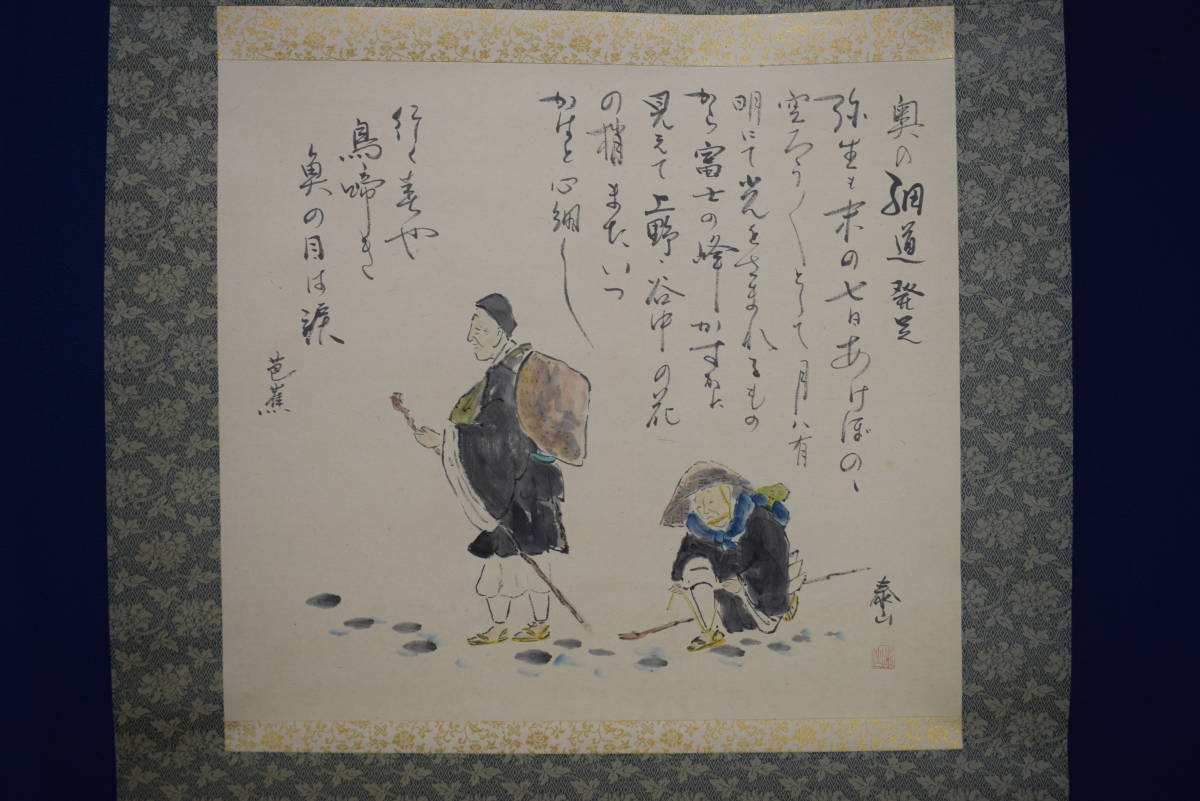 奥の細道 発足
弥生も末の七日あけぼのゝ
空ろう〱として月ハ有
明にて光をさまれるもの
から富士の峰かすかに
見えて上野・谷中の花
の梢またいつ
かはと心細し
行く春や
鳥啼き
魚の目は涙
芭蕉
泰山